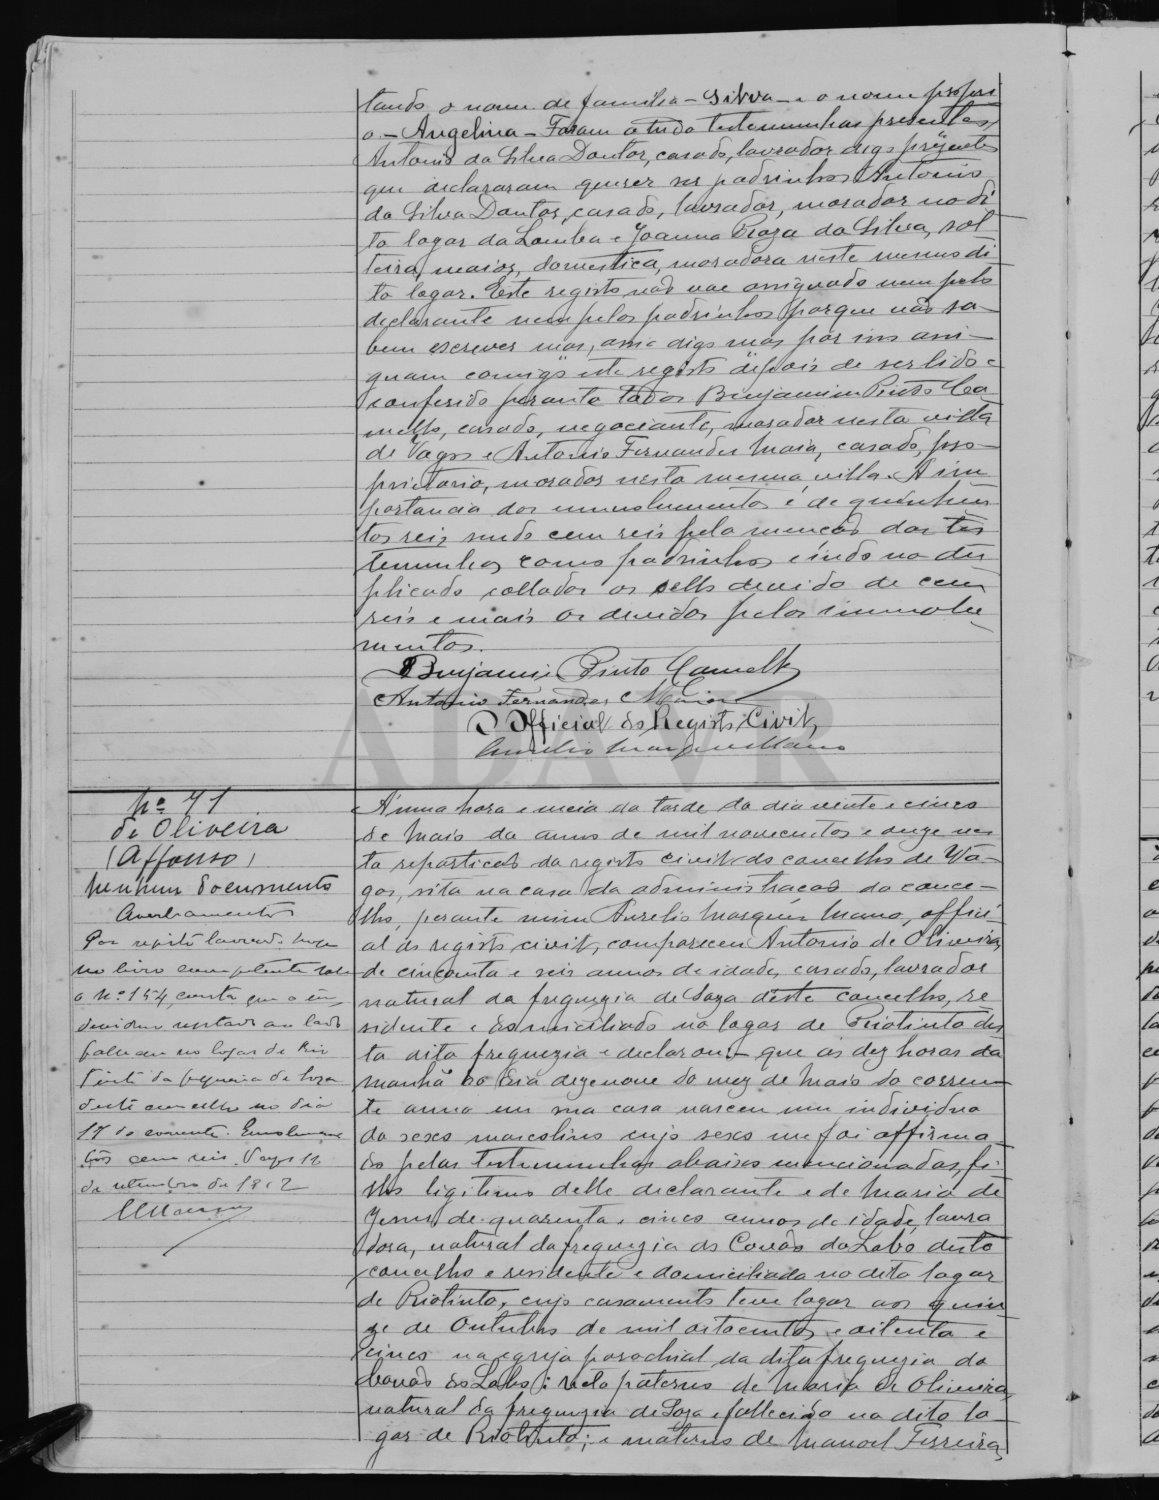 tando o nome de familia - Silva - e o nome propri
o - Angelina - Foram a tudo testemunhas presentes
Antonio da Silva Dantas, casado, lavrador digo presentes
que declararam querer ser padrinhos Antonio
da Silva Dantas, casado, lavrador, morador no di
to logar da Lomba e Joanna Roza da Silva, sol
teira, maior, domestica, moradora neste mesmo di
to logar. Este registo não vae assignado nem pelo
declarante nem pelos padrinhos porque não sa-
bem escrever mas, assi digo mas por iss assi-
gnam comigo este registo depois de ser lido e
conferido perante todos Benjamim Pinto Ca
mello, casado, negociante, morador nesta villa
de Vagos e Antonio Fernandes Maia, casado, pro-
prietario, morador nesta mesma villa. A im
portancia dos emolumentos é de quinhen
tos reis sendo cem reis pela menção das tes
temunhas como padrinhos e indo no du
plicado collados os sellos devido de cem
reis e mais os devidos pelos emmolu
mentos.
Benjamim Pinto Camello
Antonio Fernandes Maia
O Official do Registo Civil,
Aurelio Marques Mano
ADAVR
Nº 71
de Oliveira
(Affonso)
Nenhum documento
Averbamentos
Por registo lavrado hoje
no livro competente sob
o Nº 154, consta que o in
dividuo registado ao lado
falleceu no logar de Rio
Tinto da freguezia de Soza
deste concelho no dia
17 do corrente. Emolumen
tos cem reis. Vagos 18
de setembro de 1912
AMano
Á uma hora e meia da tarde do dia vinte e cinco
de Maio do anno de mil novecentos e doze nes
ta repartição do registo civil do concelho de Va-
gos, sita na casa da administração do conce-
lho, perante mim Aurelio Marques Mano, offici-
al do registo civil, compareceu Antonio de Oliveira,
de cincoenta e seis annos de idade, casado, lavrador
natural da freguezia de Soza deste concelho, re
sidente e domiciliado no logar de Riotinto des
ta dita freguezia e declarou - que ás dez horas da
manhã do dia dezenove do mez de Maio do corren-
te anno em sua casa nasceu um individuo
do sexo masculino cujo sexo me foi affirma-
do pelas testemunhas abaixo mencionadas, fi-
lho ligitimo delle declarante e de Maria de
Jesus de quarenta e cinco annos de idade, lavra
dora, natural da freguezia de Covão do Lobo deste
concelho e residente e domiciliada no dito logar
de Riotinto, cujo casamento teve logar aos quin
ze de Outubro de mil oitocentos e oitenta e
cinco na egreja parochial da dita freguezia do
Covão do Lobo; neto paterno de Maria de Oliveira,
natural da freguezia de Soza e fallecida no dito lo-
gar de Riotinto; e materno de Manoel Ferreira,